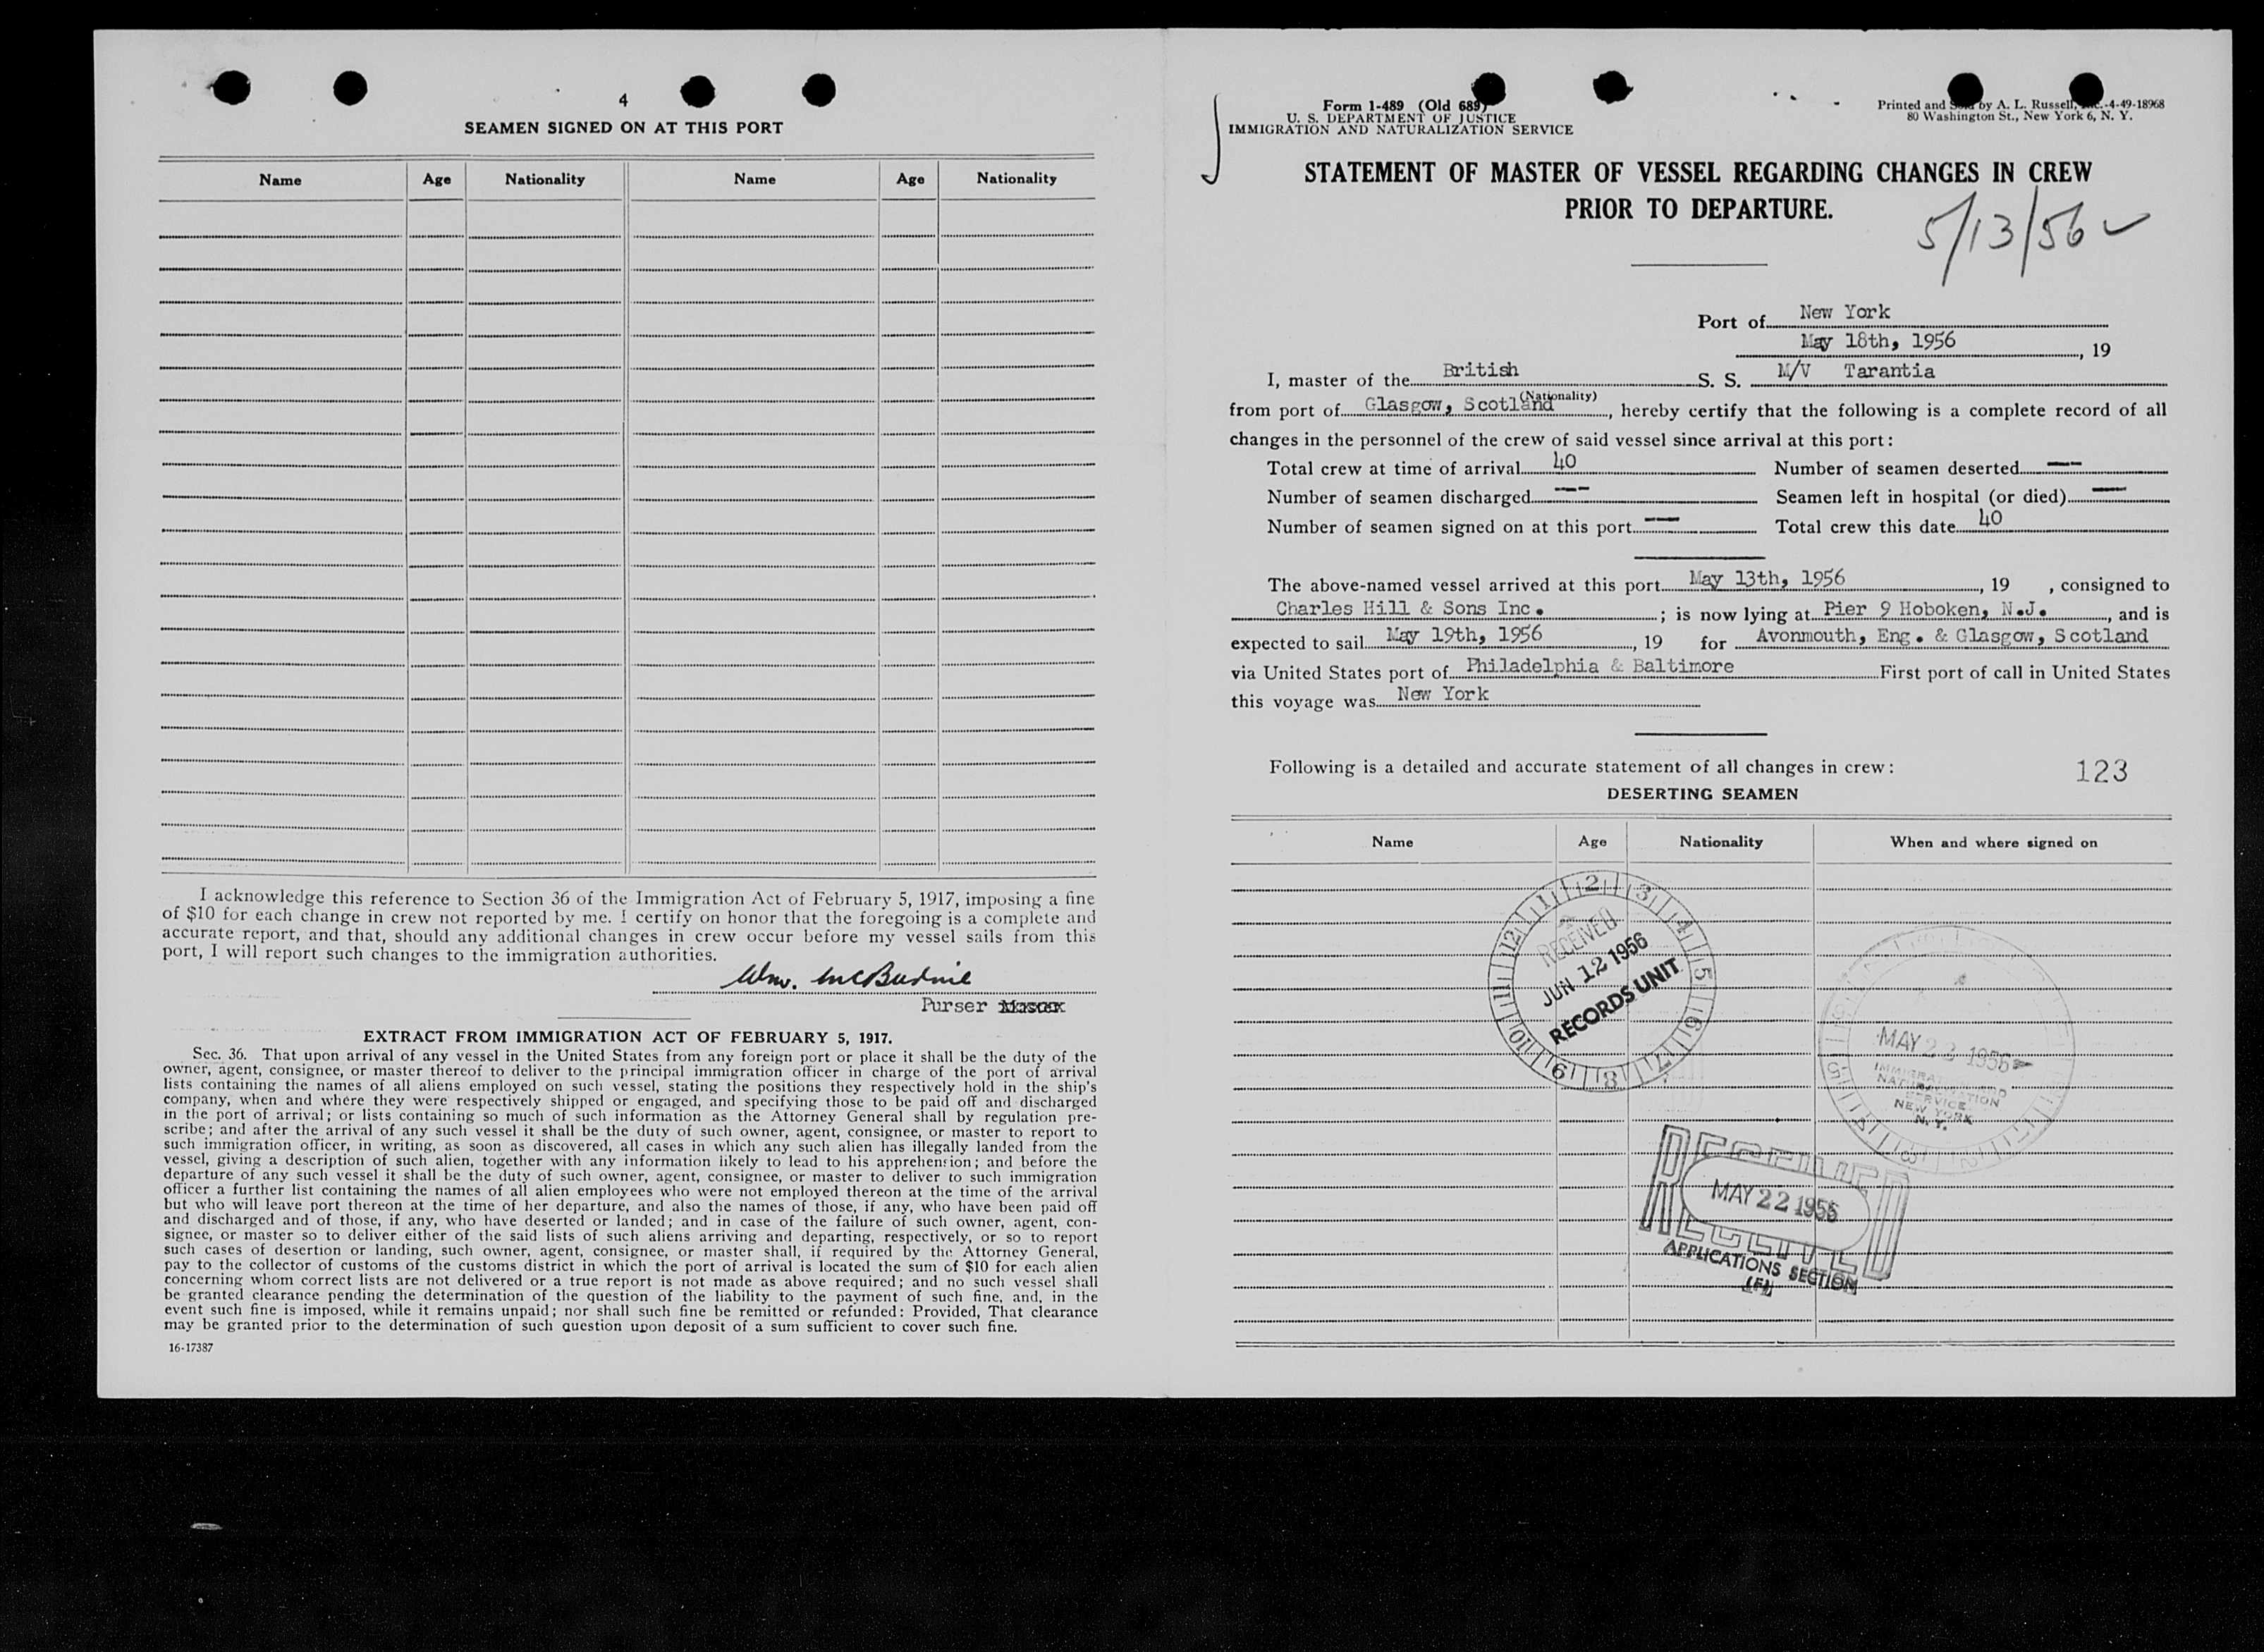 4
SEAMEN SIGNED ON AT THIS PORT
Name Age Nationality Name Age Nationality
I acknowledge this reference to Section 36 of the Immigration Act of February 5, 1917, imposing a fine
of $10 for each change in crew not reported by me. I certify on honor that the foregoing is a complete and
accurate report, and that, should any additional changes in crew occur before my vessel sails from this
port, I will report such changes to the immigration authorities.
Wm. McBurnie
Purser Master
EXTRACT FROM IMMIGRATION ACT OF FEBRUARY 5, 1917.
Sec. 36. That upon arrival of any vessel in the United States from any foreign port or place it shall be the duty of the
owner, agent, consignee, or master thereof to deliver to the principal immigration officer in charge of the port of arrival
lists containing the names of all aliens employed on such vessel, stating the positions they respectively hold in the ship's
company, when and where they were respectively shipped or engaged, and specifying those to be paid off and discharged
in the port of arrival; or lists containing so much of such information as the Attorney General shall by regulation pre-
scribe; and after the arrival of any such vessel it shall be the duty of such owner, agent, consignee, or master to report to
such immigration officer, in writing, as soon as discovered, all cases in which any such alien has illegally landed from the
vessel, giving a description of such alien, together with any information likely to lead to his apprehension; and before the
departure of any such vessel it shall be the duty of such owner, agent, consignee, or master to deliver to such immigration
officer a further list containing the names of all alien employees who were not employed thereon at the time of the arrival
but who will leave port thereon at the time of her departure, and also the names of those, if any, who have been paid off
and discharged and of those, if any, who have deserted or landed; and in case of the failure of such owner, agent, con-
signee, or master so to deliver either of the said lists of such aliens arriving and departing, respectively, or so to report
such cases of desertion or landing, such owner, agent, consignee, or master shall, if required by the Attorney General,
pay to the collector of customs of the customs district in which the port of arrival is located the sum of $10 for each alien
concerning whom correct lists are not delivered or a true report is not made as above required; and no such vessel shall
be granted clearance pending the determination of the question of the liability to the payment of such fine, and, in the
event such fine is imposed, while it remains unpaid; nor shall such fine be remitted or refunded: Provided, That clearance
may be granted prior to the determination of such question upon deposit of a sum sufficient to cover such fine.
16-17387
Form 1-489 (Old 689)
U. S. DEPARTMENT OF JUSTICE
IMMIGRATION AND NATURALIZATION SERVICE
Printed and Sold by A. L. Russell, Inc.-4-49-18968
80 Washington St., New York 6, N. Y.
STATEMENT OF MASTER OF VESSEL REGARDING CHANGES IN CREW
PRIOR TO DEPARTURE.
5/13/56
Port of New York
May 18th, 1956, 19
I, master of the British S. S. M/V Tarantia
(Nationality)
from port of Glasgow, Scotland, hereby certify that the following is a complete record of all
changes in the personnel of the crew of said vessel since arrival at this port:
Total crew at time of arrival 40 Number of seamen deserted --
Number of seamen discharged -- Seamen left in hospital (or died) --
Number of seamen signed on at this port -- Total crew this date 40
The above-named vessel arrived at this port May 13th, 1956, 19 , consigned to
Charles Hill & Sons Inc. ; is now lying at Pier 9 Hoboken, N.J., and is
expected to sail May 19th, 1956, 19 for Avonmouth, Eng. & Glasgow, Scotland
via United States port of Philadelphia & Baltimore First port of call in United States
this voyage was New York
Following is a detailed and accurate statement of all changes in crew:
123
DESERTING SEAMEN
Name Age Nationality When and where signed on
1 2 3 4 5 6 7 8 9 10 11 12
RECEIVED
JUN 12 1956
RECORDS UNIT
MAY 23 1956
IMMIGRATION AND
NATURALIZATION
SERVICE
NEW YORK
N. Y.
RECEIVED
MAY 22 1956
APPLICATIONS SECTION